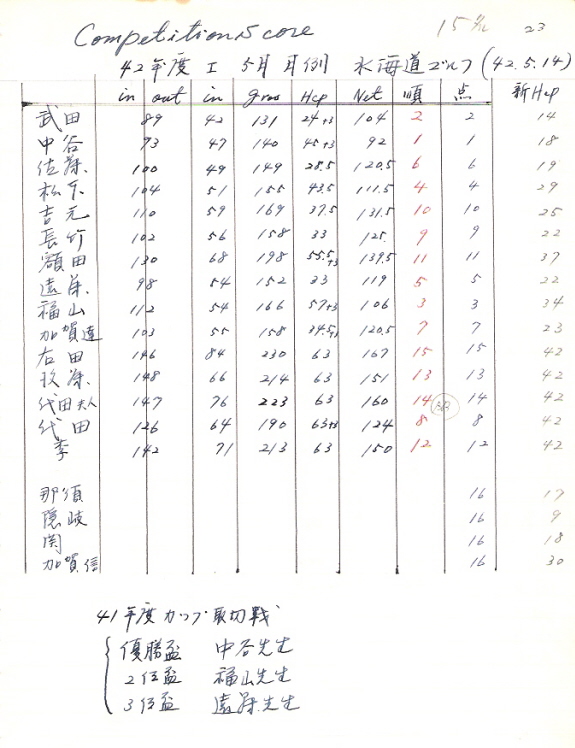 Competition Score 15名 23
42年度 I 5月 月例 氷海道ゴルフ (42.5.14)
in out in gros Hcp Net 順 点 新Hcp
武田 89 42 131 24+3 104 2 2 14
中谷 93 47 140 45+3 92 1 1 18
佐藤 100 49 149 28.5 120.5 6 6 19
松下 104 51 155 43.5 111.5 4 4 29
吉元 110 59 169 37.5 131.5 10 10 25
長竹 102 56 158 33 125. 9 9 22
額田 130 68 198 55.5+3 139.5 11 11 37
遠藤 98 54 152 33 119 5 5 22
福山 112 54 166 57+3 106 3 3 34
加賀遠 103 55 158 34.5+3 120.5 7 7 23
右田 146 84 230 63 167 15 15 42
玖藤 148 66 214 63 151 13 13 42
代田夫人 147 76 223 63 160 14 BB 14 42
代田 126 64 190 63+3 124 8 8 42
李 142 71 213 63 150 12 12 42
那須 16 17
隠岐 16 9
関 16 18
加賀信 16 30
41年度カップ取切戦
優勝盃 中谷先生
2位盃 福山先生
3位盃 遠藤先生